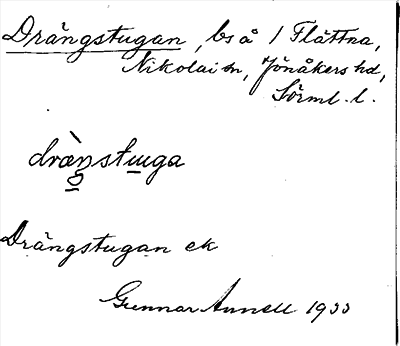 Drängstugan, bs å 1 Flättna,
Nikolai sn, Jönåkers hd,
Sörml. l.
dràŋstuga
Drängstugan ek
Gunnar Annell 1933